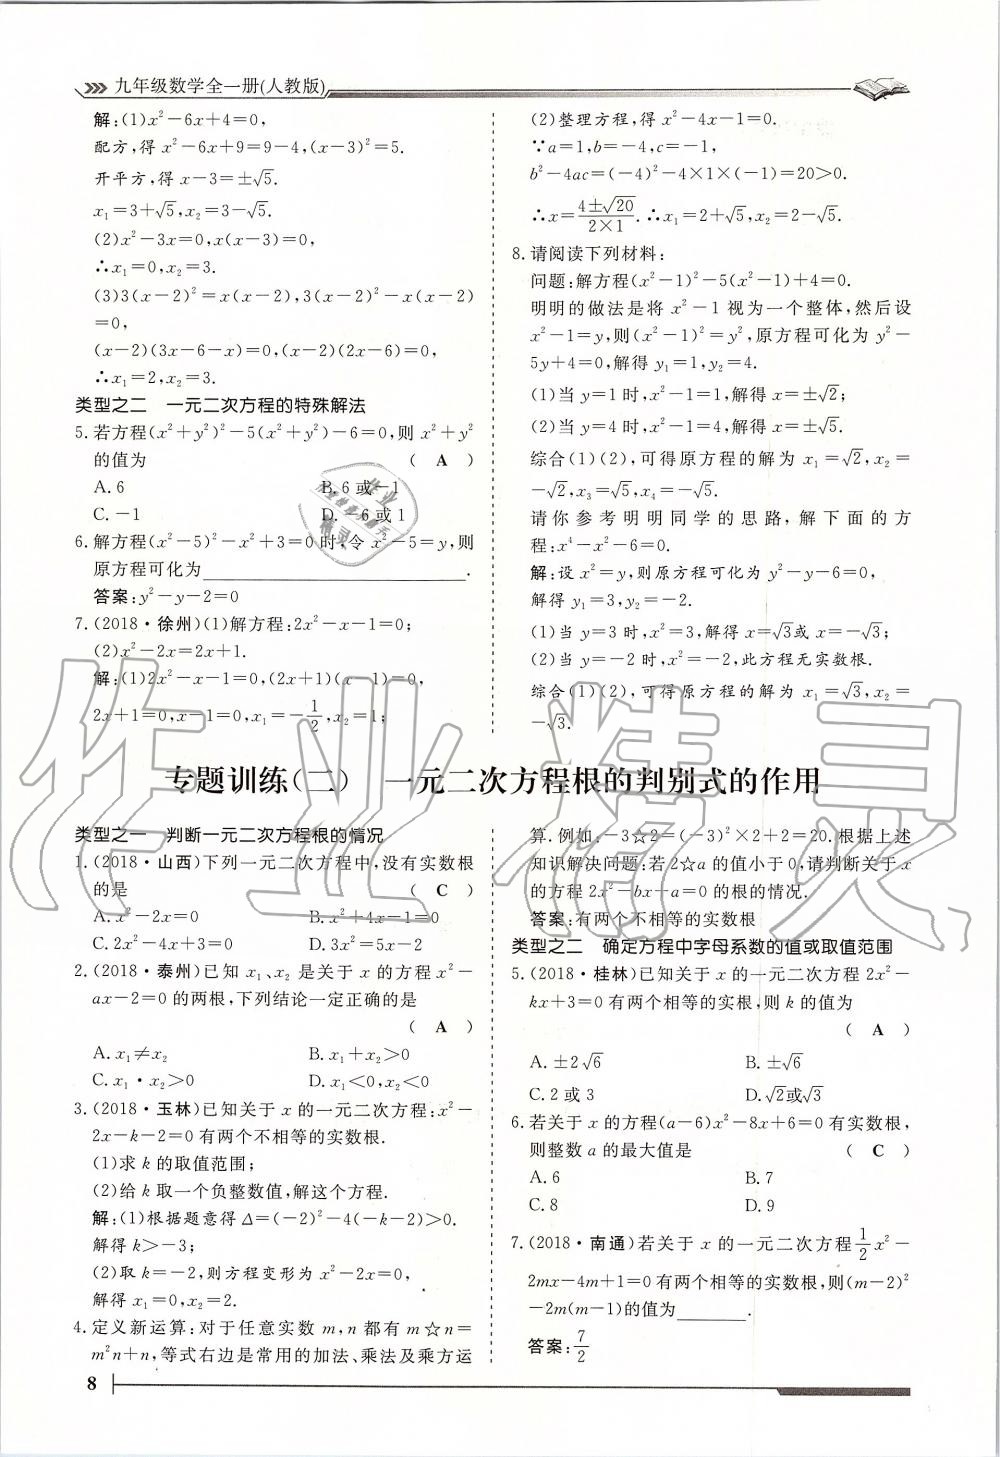 九年级数学全一册(人教版)
解:(1)x²-6x+4=0,
配方,得 x²-6x+9=9-4,(x-3)²=5.
开平方,得 x-3=±√5.
x₁=3+√5,x₂=3-√5.
(2)x²-3x=0,x(x-3)=0,
∴x₁=0,x₂=3.
(3)3(x-2)²=x(x-2),3(x-2)²-x(x-2)
=0,
(x-2)(3x-6-x)=0,(x-2)(2x-6)=0,
∴x₁=2,x₂=3.
类型之二 一元二次方程的特殊解法
5.若方程(x²+y²)²-5(x²+y²)-6=0,则 x²+y²
的值为 ( A )
A.6 B.6 或-1
C.-1 D.-6 或 1
6.解方程(x²-5)²-x²+3=0 时,令 x²-5=y,则
原方程可化为______.
答案:y²-y-2=0
7.(2018·徐州)(1)解方程:2x²-x-1=0;
(2)x²-2x=2x+1.
解:(1)2x²-x-1=0,(2x+1)(x-1)=0,
2x+1=0,x-1=0,x₁=-1/2,x₂=1;
(2)整理方程,得 x²-4x-1=0.
∵a=1,b=-4,c=-1,
b²-4ac=(-4)²-4×1×(-1)=20>0.
∴x=(4±√20)/(2×1).∴x₁=2+√5,x₂=2-√5.
8.请阅读下列材料:
问题:解方程(x²-1)²-5(x²-1)+4=0.
明明的做法是将 x²-1 视为一个整体,然后设
x²-1=y,则(x²-1)²=y²,原方程可化为 y²-
5y+4=0,解得 y₁=1,y₂=4.
(1)当 y=1 时,x²-1=1,解得 x=±√2.
(2)当 y=4 时,x²-1=4,解得 x=±√5.
综合(1)(2),可得原方程的解为 x₁=√2,x₂=
-√2,x₃=√5,x₄=-√5.
请你参考明明同学的思路,解下面的方
程:x⁴-x²-6=0.
解:设 x²=y,则原方程可化为 y²-y-6=0,
解得 y₁=3,y₂=-2.
(1)当 y=3 时,x²=3,解得 x=√3或 x=-√3;
(2)当 y=-2 时,x²=-2,此方程无实数根.
综合(1)(2),可得原方程的解为 x₁=√3,x₂=
-√3.
专题训练(二) 一元二次方程根的判别式的作用
类型之一 判断一元二次方程根的情况
1.(2018·山西)下列一元二次方程中,没有实数根
的是 ( C )
A.x²-2x=0 B.x²+4x-1=0
C.2x²-4x+3=0 D.3x²=5x-2
2.(2018·泰州)已知 x₁、x₂ 是关于 x 的方程 x²-
ax-2=0 的两根,下列结论一定正确的是
( A )
A.x₁≠x₂ B.x₁+x₂>0
C.x₁·x₂>0 D.x₁<0,x₂<0
3.(2018·玉林)已知关于 x 的一元二次方程:x²-
2x-k-2=0 有两个不相等的实数根.
(1)求 k 的取值范围;
(2)给 k 取一个负整数值,解这个方程.
解:(1)根据题意得 Δ=(-2)²-4(-k-2)>0.
解得 k>-3;
(2)取 k=-2,则方程变形为 x²-2x=0.
解得 x₁=0,x₂=2.
4.定义新运算:对于任意实数 m,n 都有 m☆n=
m²n+n,等式右边是常用的加法、乘法及乘方运
算.例如.-3☆2=(-3)²×2+2=20.根据上述
知识解决问题:若 2☆a 的值小于 0,请判断关于 x
的方程 2x²-bx+a=0 的根的情况.
答案:有两个不相等的实数根
类型之二 确定方程中字母系数的值或取值范围
5.(2018·桂林)已知关于 x 的一元二次方程 2x²-
kx+3=0 有两个相等的实根,则 k 的值为
( A )
A.±2√6 B.±√6
C.2 或 3 D.√2或√3
6.若关于 x 的方程(a-6)x²-8x+6=0 有实数根,
则整数 a 的最大值是 ( C )
A.6 B.7
C.8 D.9
7.(2018·南通)若关于 x 的一元二次方程1/2x²-
2mx-4m+1=0 有两个相等的实数根,则(m-2)²
-2m(m-1)的值为______.
答案:7/2
8
作业精灵